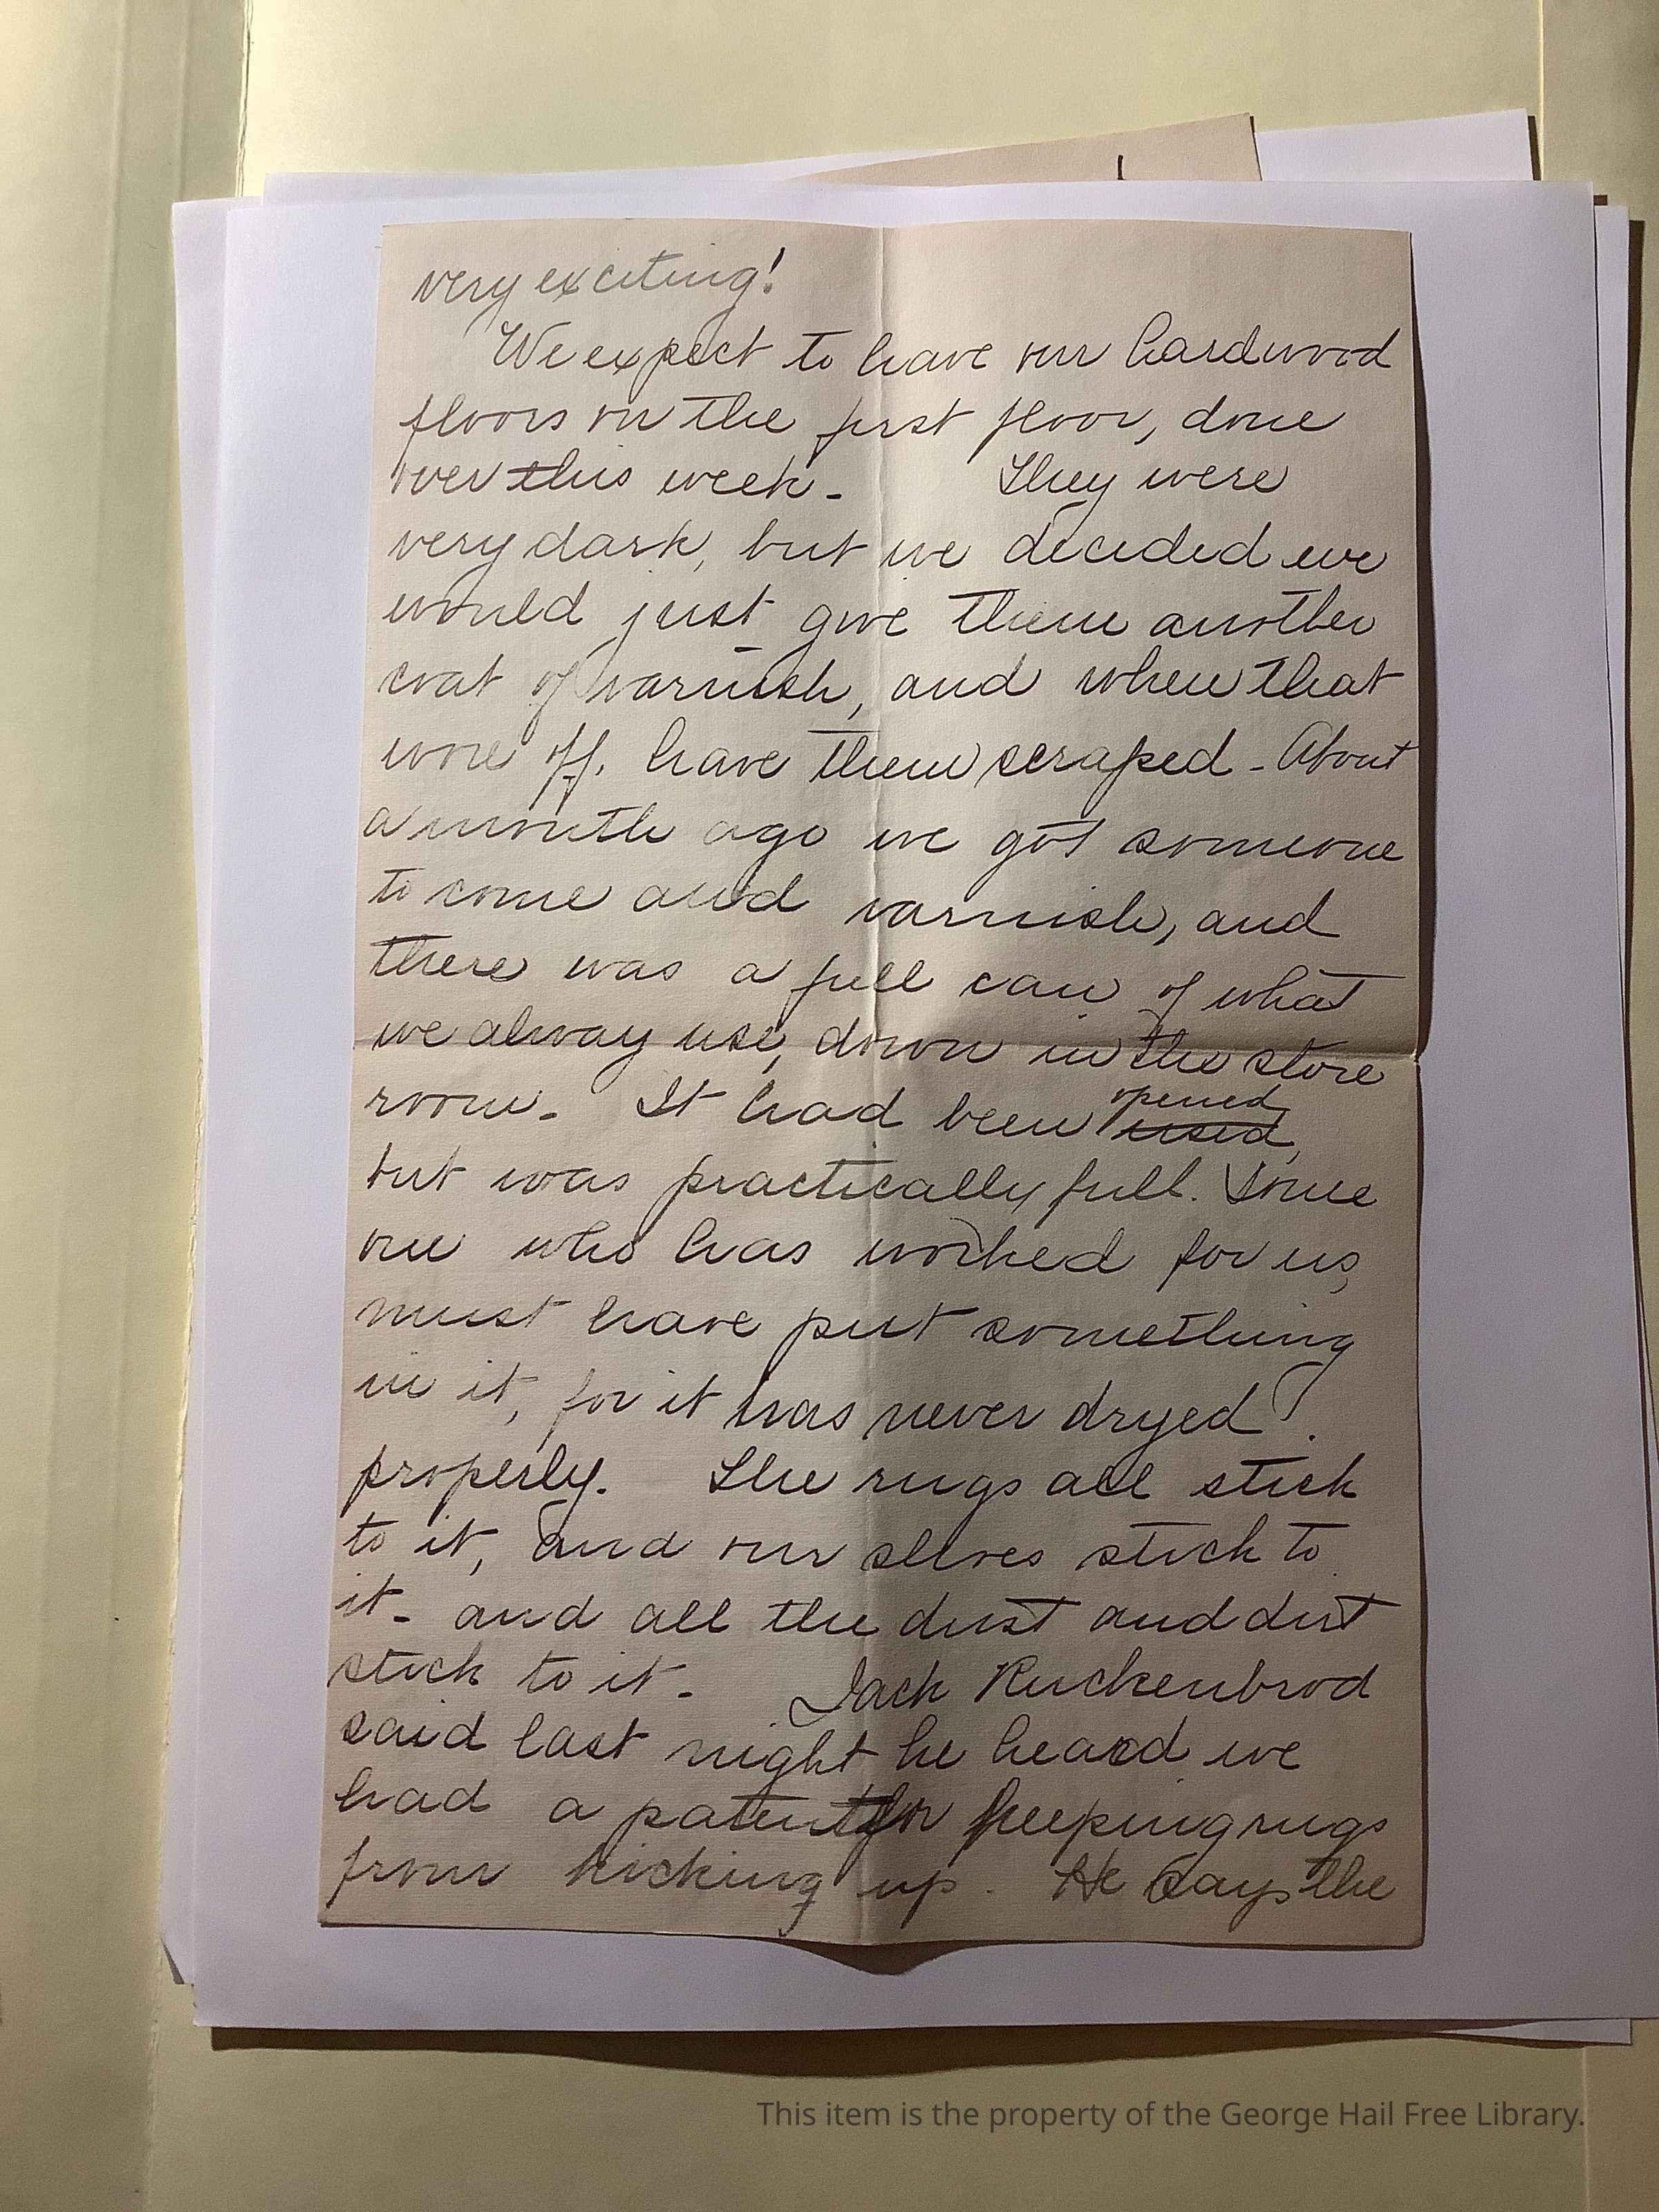 very exciting!
We expect to have our hardwood
floors on the first floor, done
over this week -  They were
very dark, but we decided we
would just give them another
coat of varnish, and when that
wore off, have them scraped - About
a month ago we got someone
to come and varnish, and
there was a full can of what
we alway use, down in the store
room - It had been opened
used,
but was practically full. Some
one who has worked for us,
must have put something
in it, for it has never dryed
properly. The rugs all stick
to it, and our shoes stick to
it - and all the dust and dirt
stick to it - Jack Ruckenbrod
said last night he heard we
had a patent for keeping rugs
from kicking up. He says the
This item is the property of the George Hail Free Library.